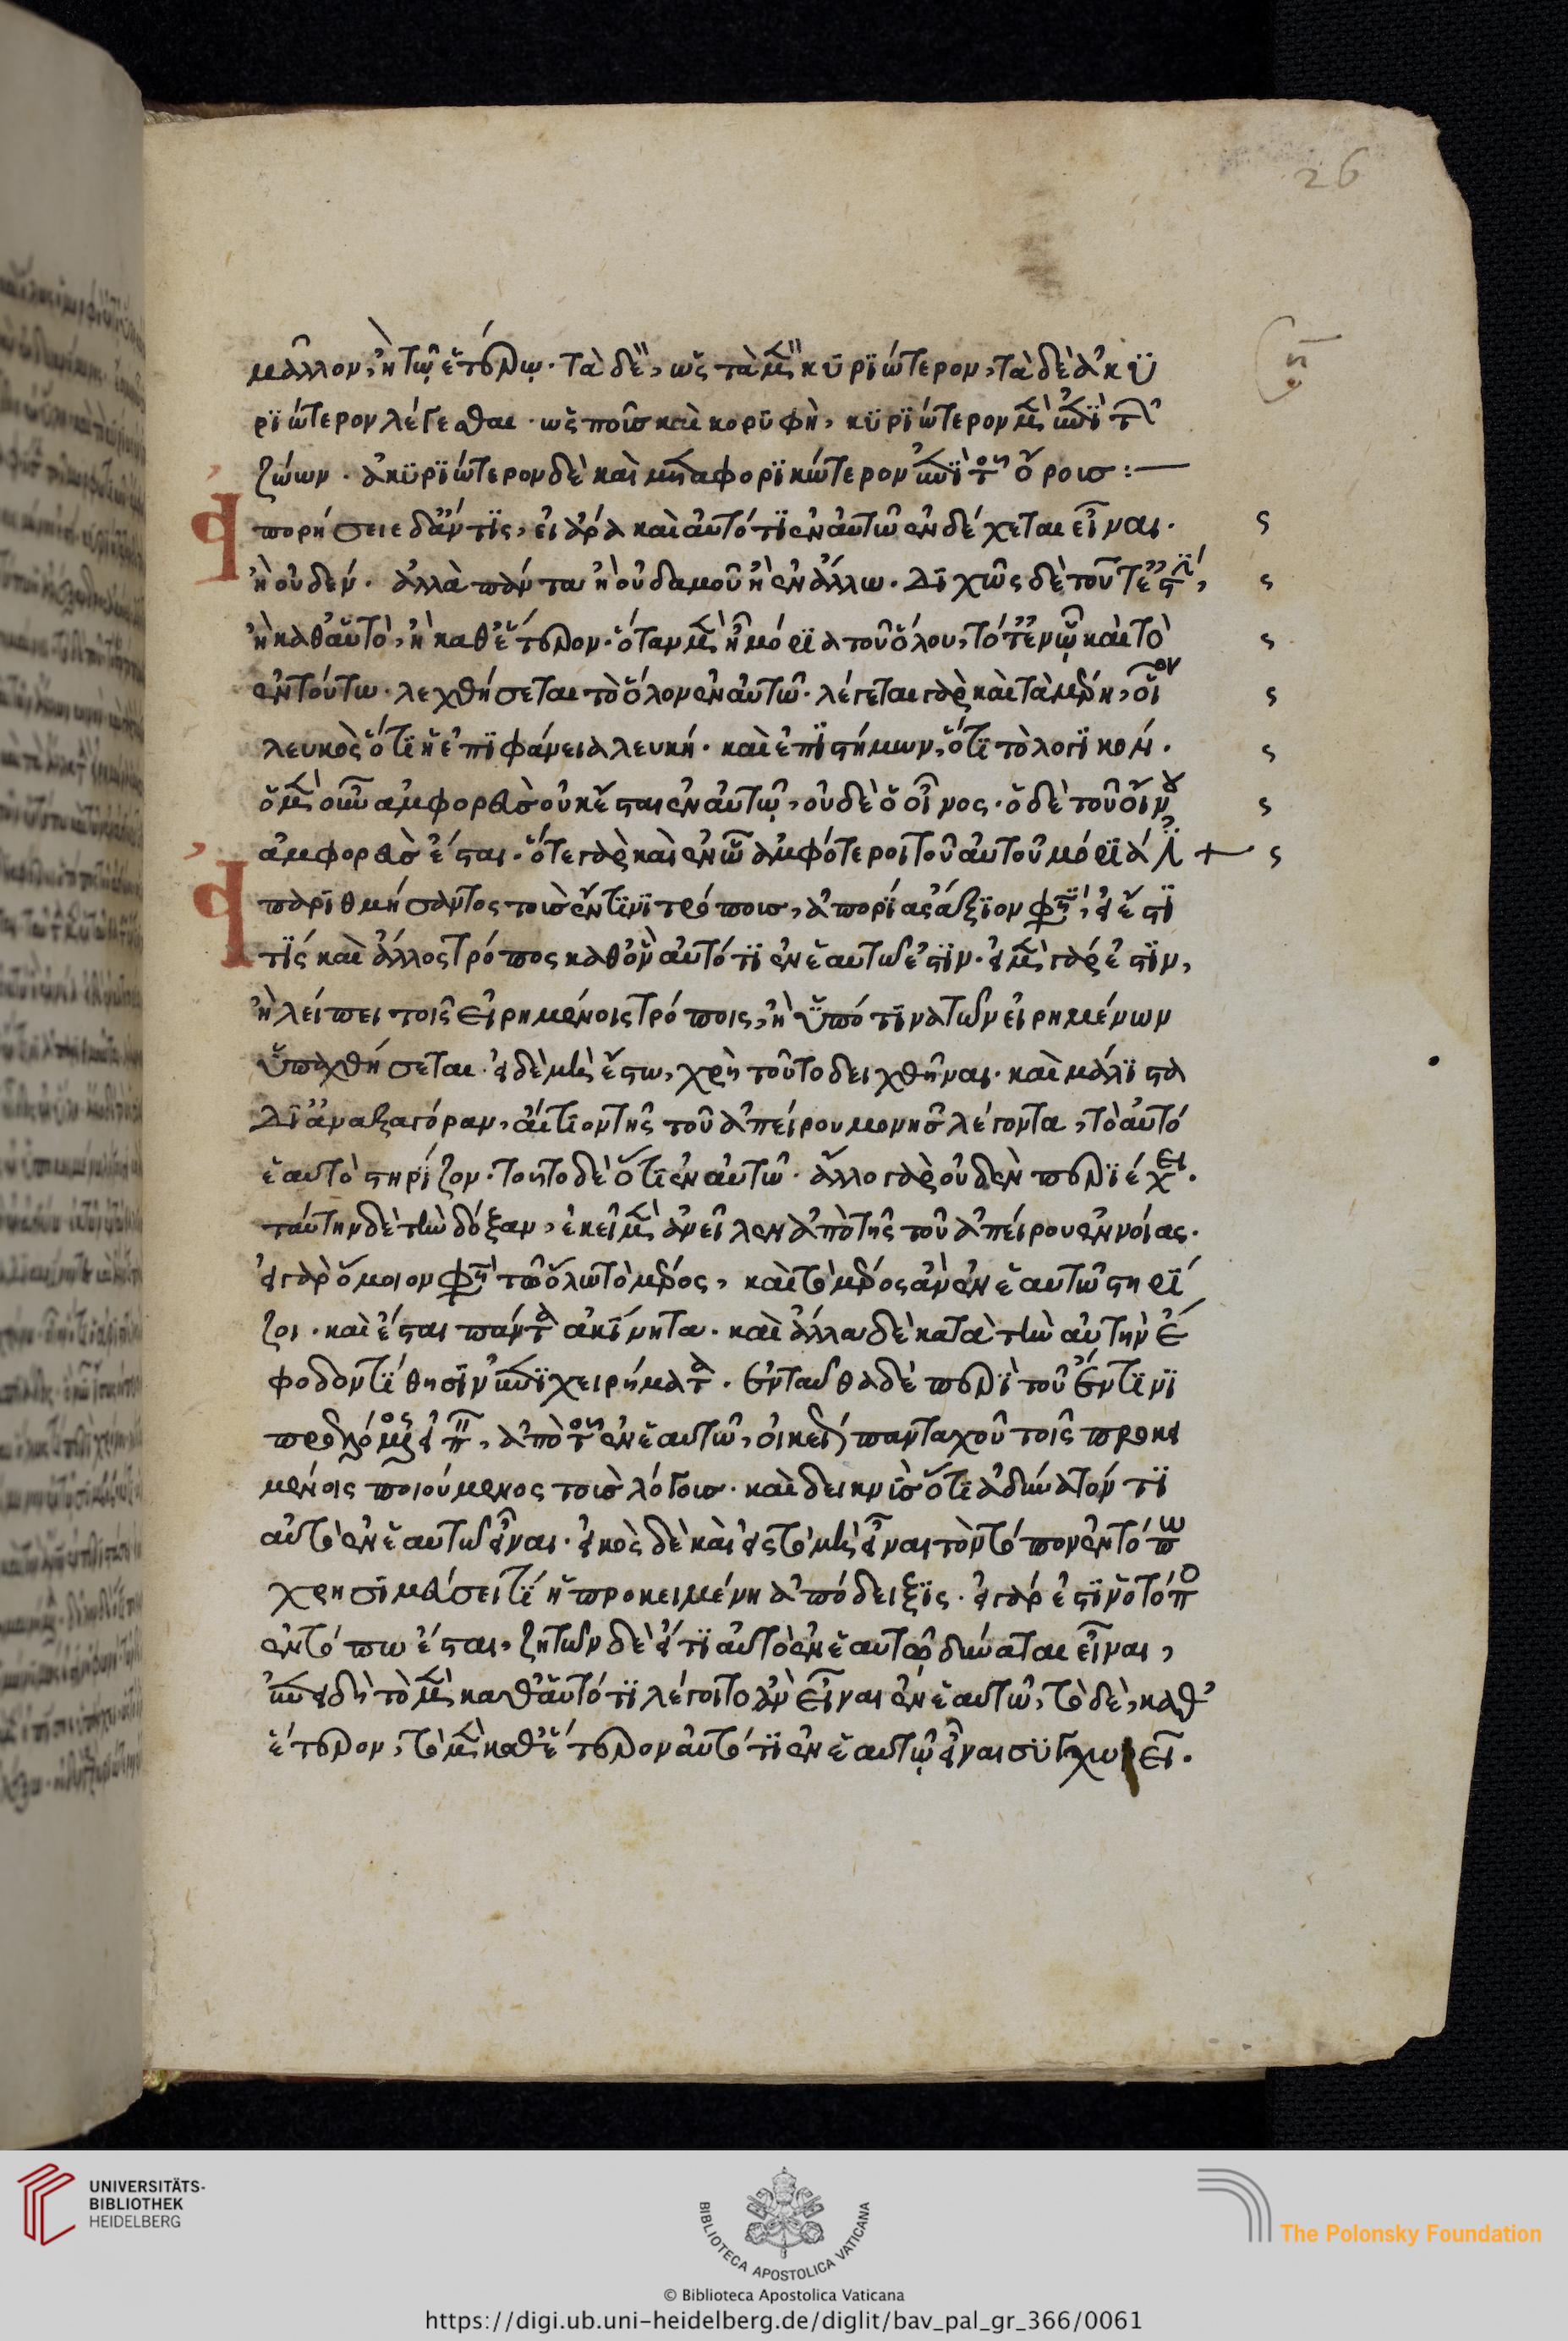 26
μᾶλλον, ἢ τῷ ἑτέρῳ· τὰ δὲ, ὡς τὰ μὲν κυριώτερον, τὰ δὲ ἀκυ
ριώτερον λέγεσθαι· ὡς ποῦσ καὶ κορυφὴ, κυριώτερον μὲν ἐπὶ τῶν
ζώων· ἀκυριώτερον δὲ καὶ μεταφορικώτερον ἐπὶ τοῦ ὄρουσ:—
πορήσειε δἄν τις, εἰ ἄρα καὶ αὐτό τι ἐν αὑτῶ ἐνδέχεται εἶναι·
ἢ οὐδέν· ἀλλὰ πάντα ἢ οὐδαμοῦ ἢ ἐν ἄλλω· διχῶς δὲ τοῦτ ἐστὶν,
ἢ καθ αὑτὸ, ἢ καθ ἕτερον· ὅταν μὲν ἦ μόρια τοῦ ὅλου, τό τ ἐν ᾧ καὶ τὸ
ἐν τούτω· λεχθήσεται τὸ ὅλον ἐν αὑτῶ· λέγεται γὰρ καὶ τὰ μέρη, οἷον
λευκὸς ὅτι ἡ ἐπιφάνεια λευκή· καὶ ἐπιστήμων, ὅτι τὸ λογικόν·
ὁ μὲν οὖν ἀμφορεὺσ οὐκ ἔσται ἐν αὑτῷ, οὐδὲ ὁ οἶνος· ὁ δὲ τοῦ οἴνου
ἀμφορεὺσ ἔσται· ὅ τε γὰρ καὶ ἐν ᾧ ἀμφότεροι τοῦ αὐτοῦ μόρια
παριθμήσαντος τοὺσ ἔν τινι τρόπουσ, ἀπορίας ἄξιον φησὶν, εἰ ἔστι
τίς καὶ ἄλλος τρόπος καθ ὃν αὐτό τι ἐν ἑαυτῶ ἐστιν· εἰ μὲν γάρ ἐστιν,
ἢ λείπει τοῖς εἰρημένοις τρόποις, ἢ ὑπό τινα τῶν εἰρημένων
ὑπαχθήσεται· εἰ δὲ μὴ ἔστω, χρὴ τοῦτο δειχθῆναι· καὶ μάλιστα
δι ἀναξαγόραν, αἴτιον τῆς τοῦ ἀπείρου μονῆσ λέγοντα, τὸ αὐτό
ἑαυτὸ στηρίζον· τοῦτο δὲ ὅτι ἐν αὑτῶ· ἄλλο γὰρ οὐδὲν περιέχει·
ταύτην δὲ τὴν δόξαν, ἐκεῖ μὲν ἀνεῖλεν ἀπὸ τῆς τοῦ ἀπείρου ἐννοίας·
εἰ γὰρ ὅμοιον φησὶ τῶ ὅλω τὸ μέρος, καὶ τὸ μέρος ἂν ἐν ἑαυτῶ στηρί
ζοι· καὶ ἔσται πάντα ἀκίνητα· καὶ ἄλλα δὲ κατὰ τὴν αὐτὴν ἔ
φοδον τίθησιν ἐπιχειρήματα· ἐνταῦθα δὲ περὶ τοῦ ἔν τινι
προθέμενος εἰπεῖν, ἀπὸ τοῦ ἐν ἑαυτῶ, οἰκείους πανταχοῦ τοῖς προκει
μένοις ποιούμενος τοὺσ λόγουσ· καὶ δείκνυσιν ὅτι ἀδύνατόν τι
αὐτὸ ἐν ἑαυτῶ εἶναι· εἰκὸς δὲ καὶ εἰς τὸ μὴ εἶναι τὸν τόπον ἐν τόπω
χρησιμεύσειέ τι ἡ προκειμένη ἀπόδειξις· εἰ γάρ ἐστιν ὁ τόπος
ἐν τόπω ἔσται, ζητῶν δὲ εἴ τι αὐτὸ ἐν ἑαυτῷ δύναται εἶναι,
ἐπειδὴ τὸ μὲν καθ αὑτό τι λέγοιτο ἂν εἶναι ἐν ἑαυτῶ, τὸ δὲ, καθ
ἕτερον, τὸ μὲν καθ ἕτερον αὐτό τι ἐν ἑαυτῷ εἶναι συγχωρεῖ·
UNIVERSITÄTS-
BIBLIOTHEK
HEIDELBERG
BIBLIOTECA APOSTOLICA VATICANA
The Polonsky Foundation
© Biblioteca Apostolica Vaticana
https://digi.ub.uni-heidelberg.de/diglit/bav_pal_gr_366/0061